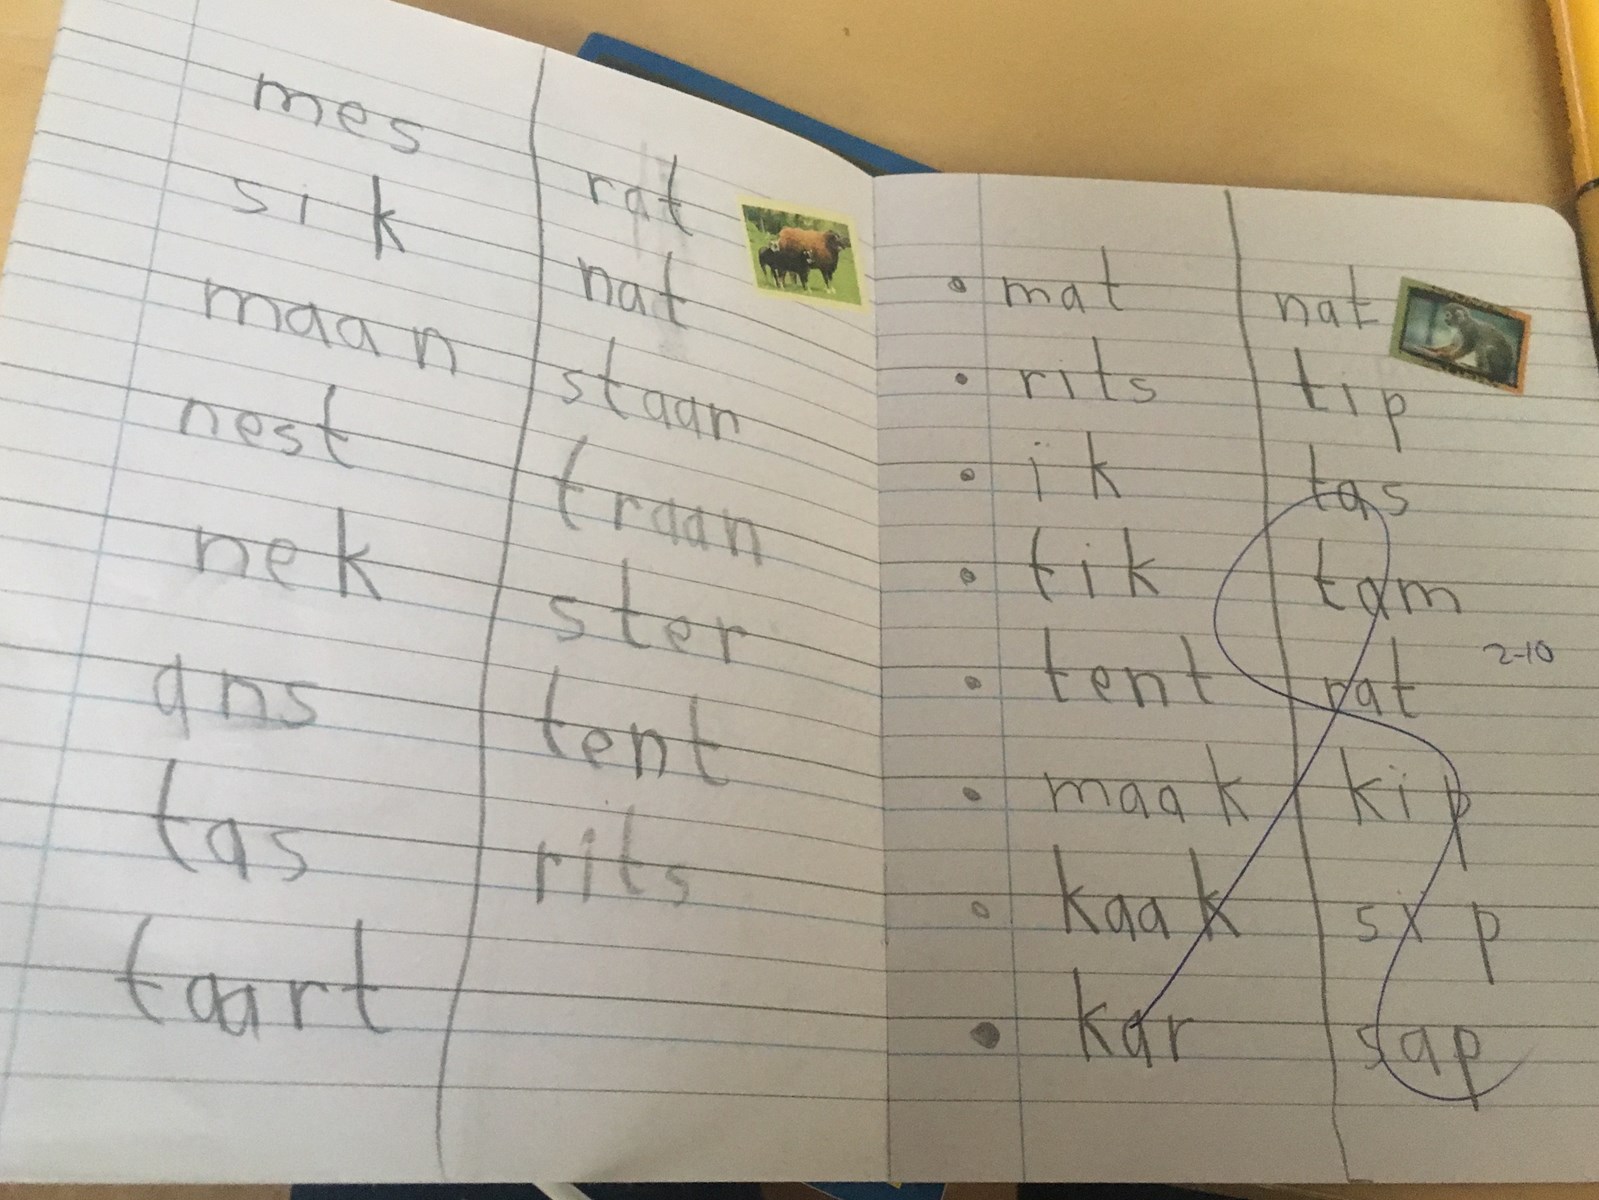 mes
sik
maan
nest
nek
ans
tas
taart
rat
nat
staan
traan
ster
tent
rits
mat
rits
ik
tik
tent
maak
kaak
kar
nat
tip
tas
tam
rat
kip
sip
sap
2-10